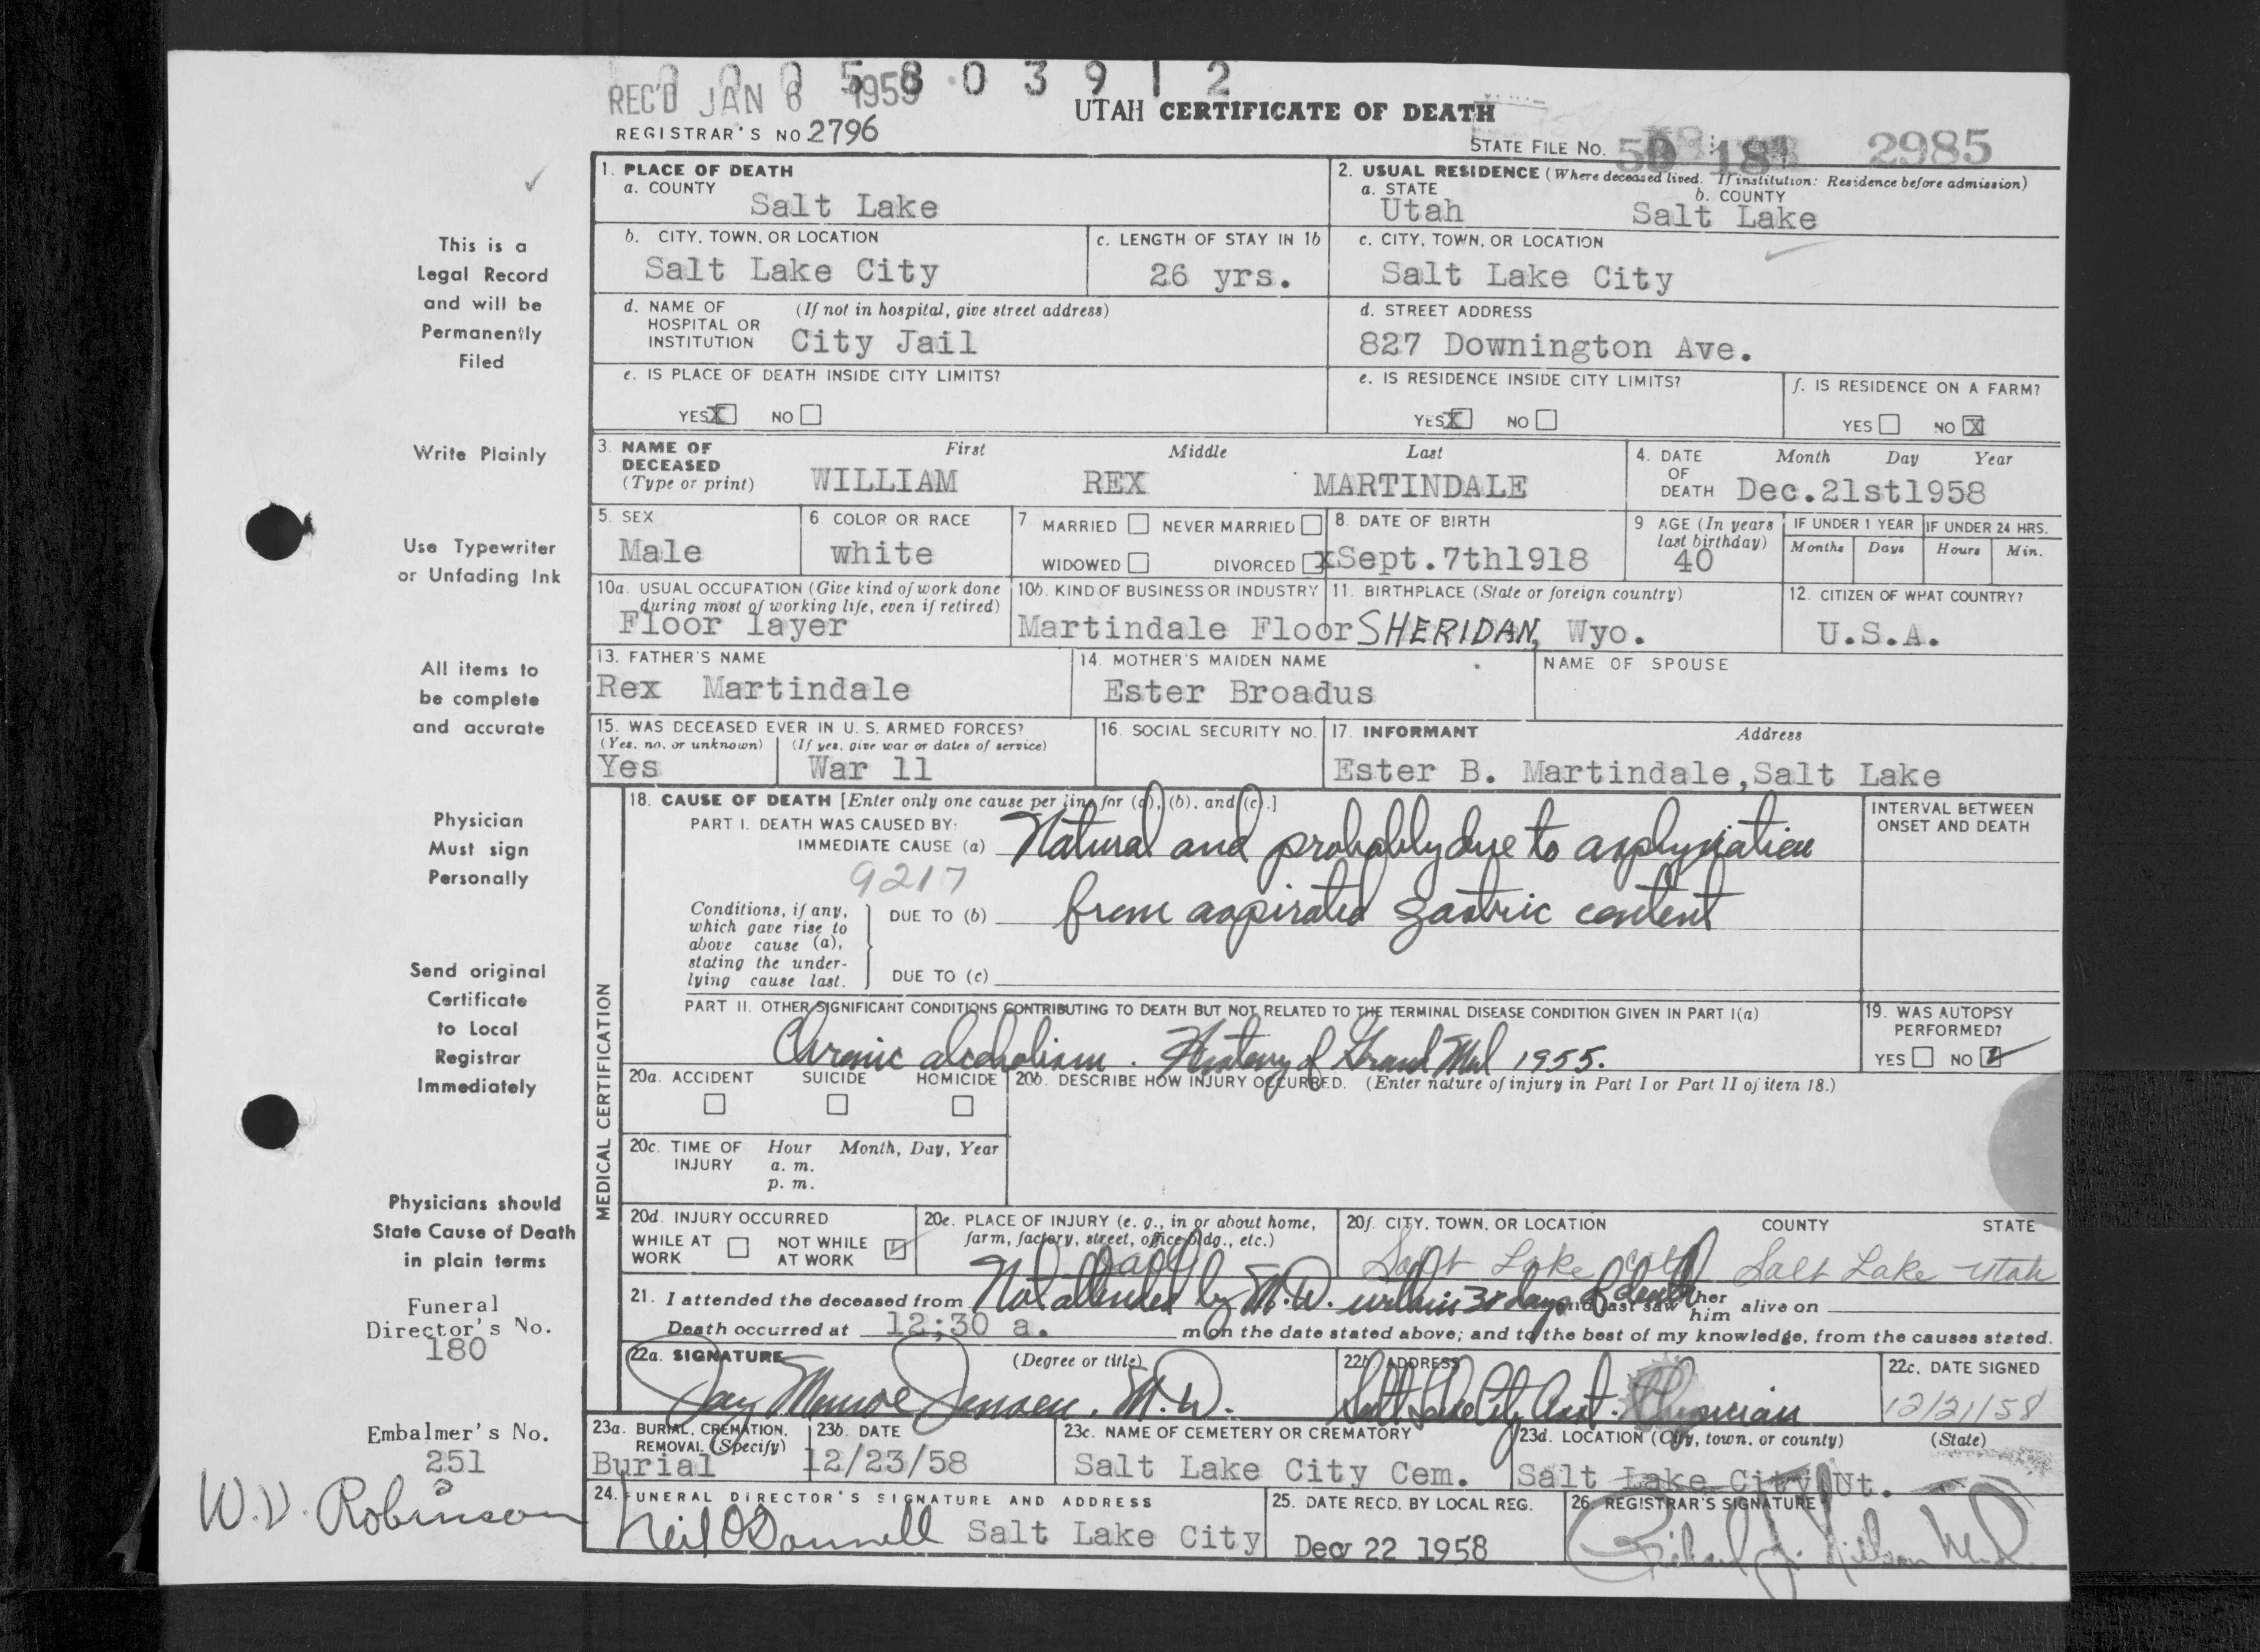 0 0 0 5 8 0 3 9 1 2
REC'D JAN 6 1959
UTAH CERTIFICATE OF DEATH
REGISTRAR'S NO. 2796
STATE FILE NO. 2985
1. PLACE OF DEATH
a. COUNTY
Salt Lake
2. USUAL RESIDENCE (Where deceased lived. If institution: Residence before admission)
a. STATE
b. COUNTY
Utah Salt Lake
This is a
Legal Record
and will be
Permanently
Filed
b. CITY, TOWN, OR LOCATION
Salt Lake City
c. LENGTH OF STAY IN 1b
26 yrs.
c. CITY, TOWN, OR LOCATION
Salt Lake City
d. NAME OF HOSPITAL OR INSTITUTION (If not in hospital, give street address)
City Jail
d. STREET ADDRESS
827 Downington Ave.
e. IS PLACE OF DEATH INSIDE CITY LIMITS?
YES X NO
e. IS RESIDENCE INSIDE CITY LIMITS?
YES X NO
f. IS RESIDENCE ON A FARM?
YES NO X
Write Plainly
3. NAME OF DECEASED (Type or print)
First Middle Last
WILLIAM REX MARTINDALE
4. DATE OF DEATH Month Day Year
Dec.21st1958
Use Typewriter
or Unfading Ink
5. SEX
Male
6. COLOR OR RACE
white
7. MARRIED NEVER MARRIED
WIDOWED DIVORCED X
8. DATE OF BIRTH
Sept.7th1918
9 AGE (In years last birthday)
40
IF UNDER 1 YEAR IF UNDER 24 HRS.
Months Days Hours Min.
10a. USUAL OCCUPATION (Give kind of work done during most of working life, even if retired)
Floor layer
10b. KIND OF BUSINESS OR INDUSTRY
Martindale Floor
11. BIRTHPLACE (State or foreign country)
SHERIDAN, Wyo.
12. CITIZEN OF WHAT COUNTRY?
U.S.A.
All items to
be complete
and accurate
13. FATHER'S NAME
Rex Martindale
14. MOTHER'S MAIDEN NAME
Ester Broadus
NAME OF SPOUSE
15. WAS DECEASED EVER IN U. S. ARMED FORCES?
(Yes, no, or unknown) (If yes, give war or dates of service)
Yes War 11
16. SOCIAL SECURITY NO.
17. INFORMANT Address
Ester B. Martindale, Salt Lake
Physician
Must sign
Personally
MEDICAL CERTIFICATION
18. CAUSE OF DEATH [Enter only one cause per line for (a), (b), and (c).]
PART I. DEATH WAS CAUSED BY:
IMMEDIATE CAUSE (a) Natural and probably due to asphyxiation
9217
Conditions, if any, which gave rise to above cause (a), stating the underlying cause last.
DUE TO (b) from aspirated gastric content
DUE TO (c)
INTERVAL BETWEEN ONSET AND DEATH
Send original
Certificate
to Local
Registrar
Immediately
PART II. OTHER SIGNIFICANT CONDITIONS CONTRIBUTING TO DEATH BUT NOT RELATED TO THE TERMINAL DISEASE CONDITION GIVEN IN PART I(a)
Chronic alcoholism. History of Grand Mal 1955.
19. WAS AUTOPSY PERFORMED?
YES NO
20a. ACCIDENT SUICIDE HOMICIDE
20b. DESCRIBE HOW INJURY OCCURRED. (Enter nature of injury in Part I or Part II of item 18.)
20c. TIME OF INJURY Hour Month, Day, Year
a. m.
p. m.
Physicians should
State Cause of Death
in plain terms
20d. INJURY OCCURRED
WHILE AT WORK NOT WHILE AT WORK
20e. PLACE OF INJURY (e. g., in or about home, farm, factory, street, office bldg., etc.)
Jail
20f. CITY, TOWN, OR LOCATION COUNTY STATE
Salt Lake City Salt Lake Utah
21. I attended the deceased from Not attended by M.D. within 30 days of death and last saw her him alive on
Death occurred at 12;30 a. m on the date stated above; and to the best of my knowledge, from the causes stated.
Funeral
Director's No.
180
22a. SIGNATURE (Degree or title)
Jay Monroe Jensen, M.D.
22b. ADDRESS
Salt Lake City Asst. Physician
22c. DATE SIGNED
12/21/58
Embalmer's No.
251
W.V. Robinson
23a. BURIAL, CREMATION, REMOVAL (Specify)
Burial
23b. DATE
12/23/58
23c. NAME OF CEMETERY OR CREMATORY
Salt Lake City Cem.
23d. LOCATION (City, town, or county) (State)
Salt Lake City Ut.
24. FUNERAL DIRECTOR'S SIGNATURE AND ADDRESS
Neil O'Donnell Salt Lake City
25. DATE RECD. BY LOCAL REG.
Dec 22 1958
26. REGISTRAR'S SIGNATURE